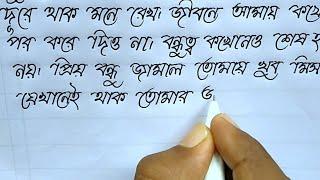 দূরে থাক মনে রেখ। জীবনে আমায় কখ
পর করে দিও না। বন্ধুত্ব কখোনও শেষ হ
নয়। প্রিয় বন্ধু জামাল তোমায়ে খুব মিস
যেখানেই থাক তোমার ভ